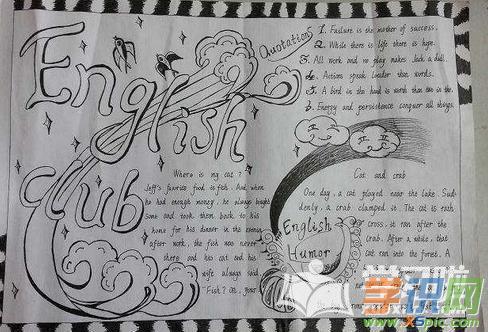 English
Club
Quotations
1. Failure is the mother of success.
2. While there is life there is hope.
3. All work and no play makes Jack a dull.
4. Actions speak louder than words.
5. A bird in the hand is worth than two in the
6. Energy and persistence conquer all things.
Where is my cat?
Jeff's favorite food is fish. And when
he had enough money, he always bought
some and took them back to his
home for his dinner in the evening
after work, the fish was never
there and his cat and his
wife always said,
"Fish? oh, your
English
Humor
Cat and crab
One day, a cat played near the lake. Sud-
denly, a crab clamped it. The cat is rath
cross, it ran after the
crab. After a while, that
cat ran into the forest.
学识网
www.x5pic.com